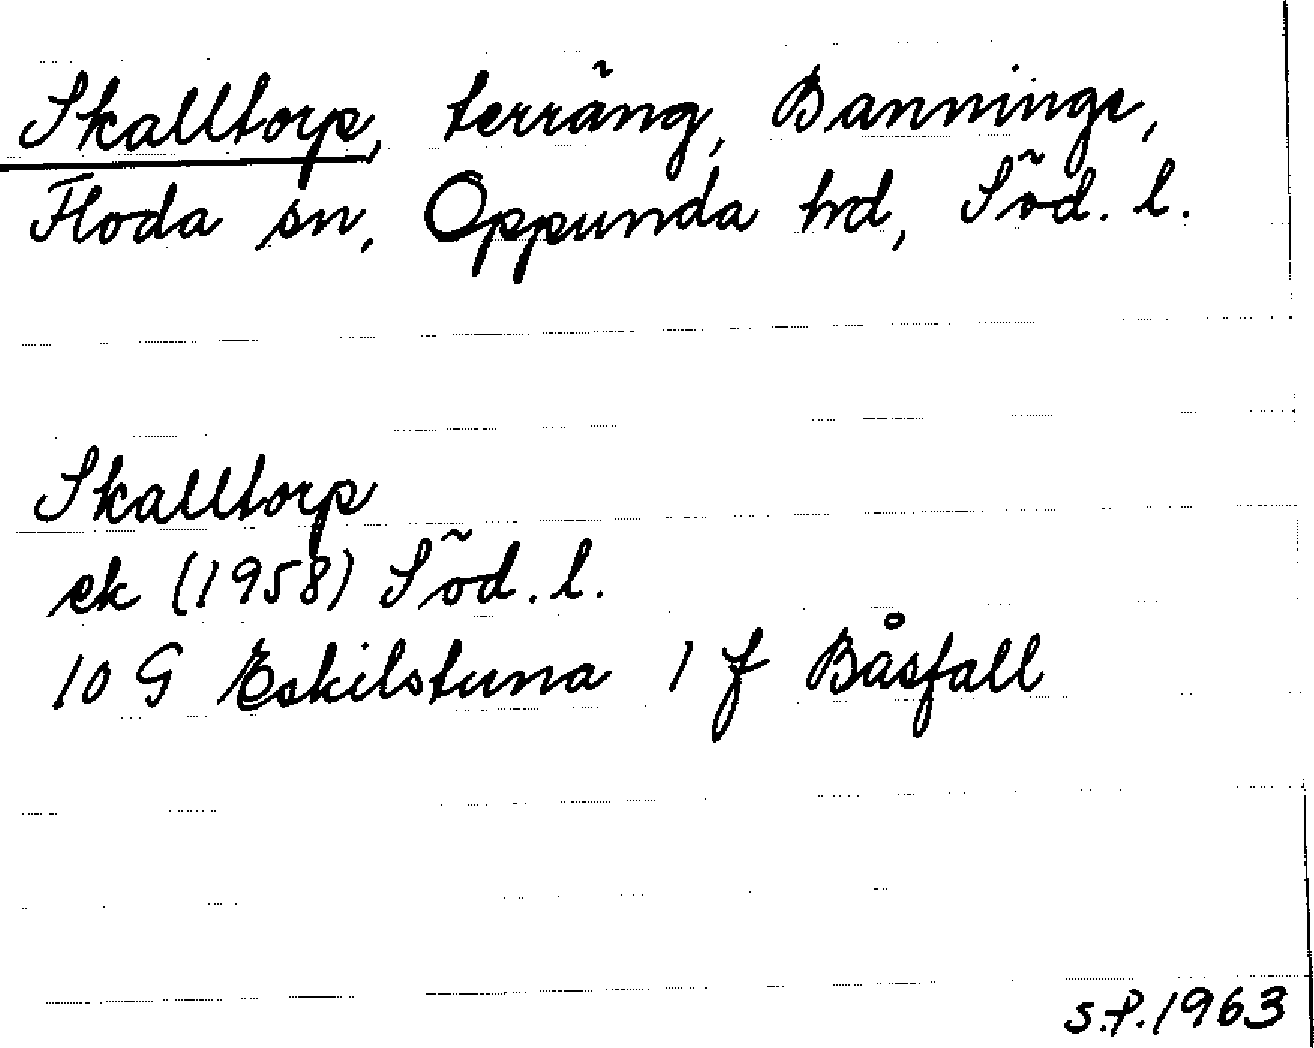 Skalltorp, terräng, Banninge,
Floda sn, Oppunda hd, Söd. l.
Skalltorp
ek (1958) Söd. l.
10 G Eskilstuna 1 f Båsfall
S.P. 1963